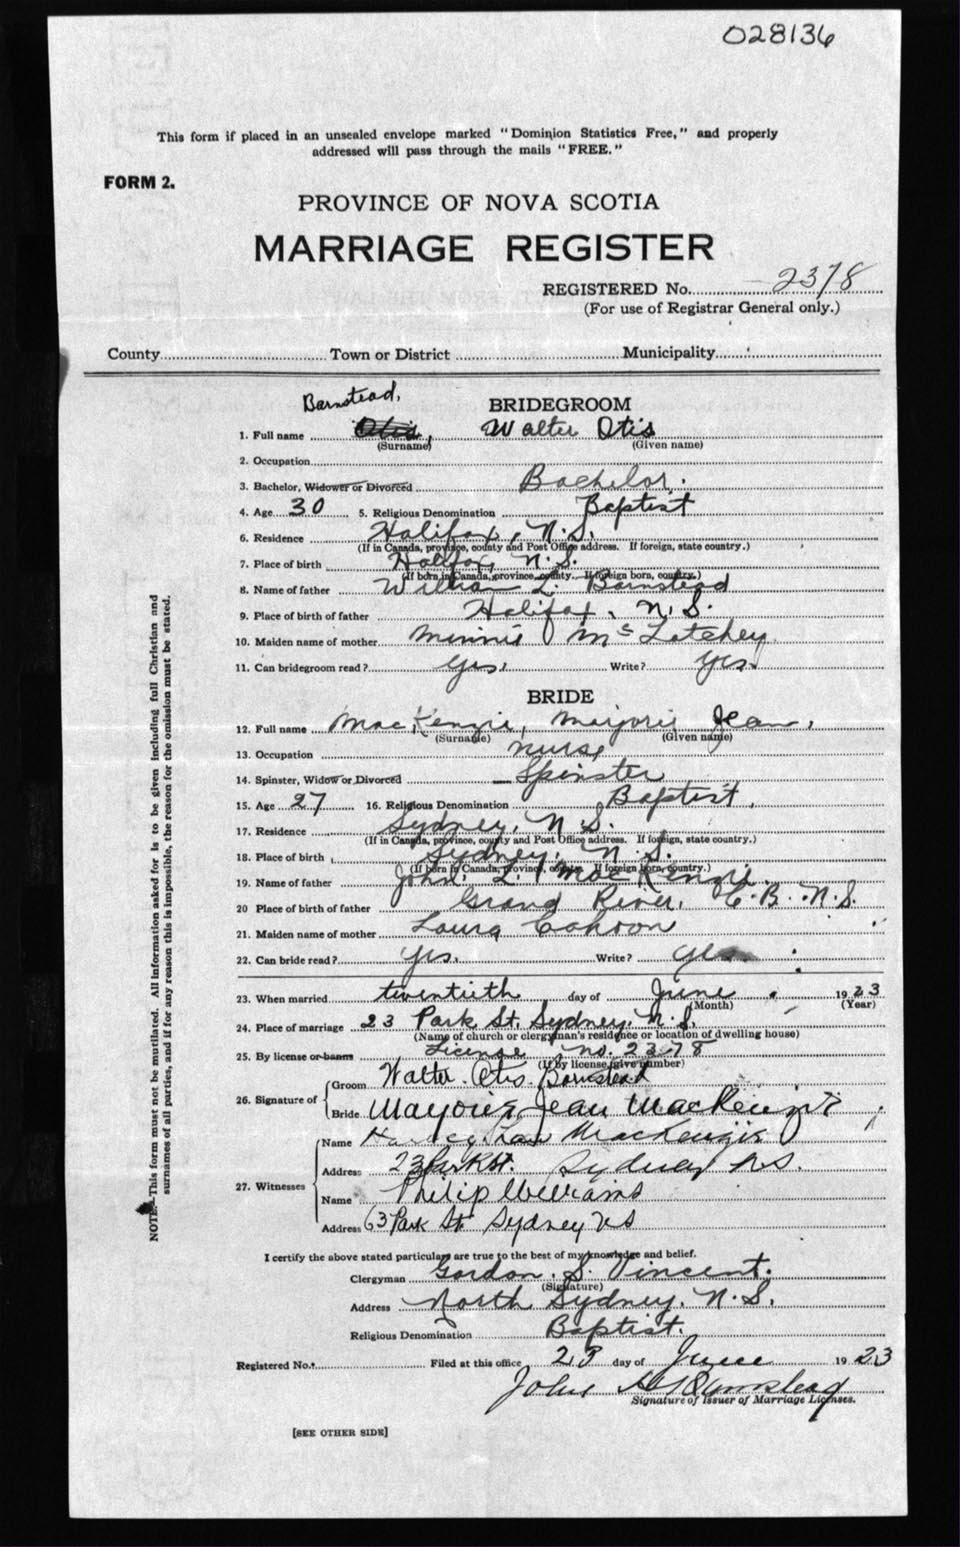 028136
This form if placed in an unsealed envelope marked "Dominion Statistics Free," and properly
addressed will pass through the mails "FREE."
FORM 2.
PROVINCE OF NOVA SCOTIA
MARRIAGE REGISTER
REGISTERED No. 2378
(For use of Registrar General only.)
County Town or District Municipality
Barnstead,
BRIDEGROOM
1. Full name Otis, Walter Otis
(Surname) (Given name)
2. Occupation
3. Bachelor, Widower or Divorced Bachelor.
4. Age 30 5. Religious Denomination Baptist
6. Residence Halifax, N.S.
(If in Canada, province, county and Post Office address. If foreign, state country.)
7. Place of birth Halifax, N.S.
(If born in Canada, province, county. If foreign born, country.)
8. Name of father William L. Barnstead
9. Place of birth of father Halifax, N.S.
10. Maiden name of mother Minnie McLatchey
11. Can bridegroom read? Yes. Write? Yes.
BRIDE
12. Full name MacKenzie, Marjorie Jean,
(Surname) (Given name)
13. Occupation nurse
14. Spinster, Widow or Divorced Spinster
15. Age 27 16. Religious Denomination Baptist,
17. Residence Sydney, N.S.
(If in Canada, province, county and Post Office address. If foreign, state country.)
18. Place of birth Sydney, N.S.
(If born in Canada, province, county. If foreign born, country.)
19. Name of father John L. MacKenzie
20 Place of birth of father Grand River, C.B. N.S.
21. Maiden name of mother Laura Cohoon
22. Can bride read? Yes. Write? Yes
23. When married twentieth day of June 1923
(Month) (Year)
24. Place of marriage 23 Park St. Sydney, N.S.
(Name of church or clergyman's residence or location of dwelling house)
25. By license or banns License no. 2378
(If by license, give number)
26. Signature of Groom Walter Otis Barnstead
Bride Marjorie Jean MacKenzie
27. Witnesses Name MacKenzie
Address 23 Park St. Sydney N.S.
Name Philip Williams
Address 63 Park St Sydney NS
I certify the above stated particulars are true to the best of my knowledge and belief.
Clergyman Gordon. S. Vincent.
(Signature)
Address North Sydney, N.S.
Religious Denomination Baptist.
Registered No. Filed at this office 23 day of June 1923
John A Barnstead
Signature of Issuer of Marriage Licenses.
[SEE OTHER SIDE]
NOTE.—This form must not be mutilated. All information asked for is to be given including full Christian and
surnames of all parties, and if for any reason this is impossible, the reason for the omission must be stated.